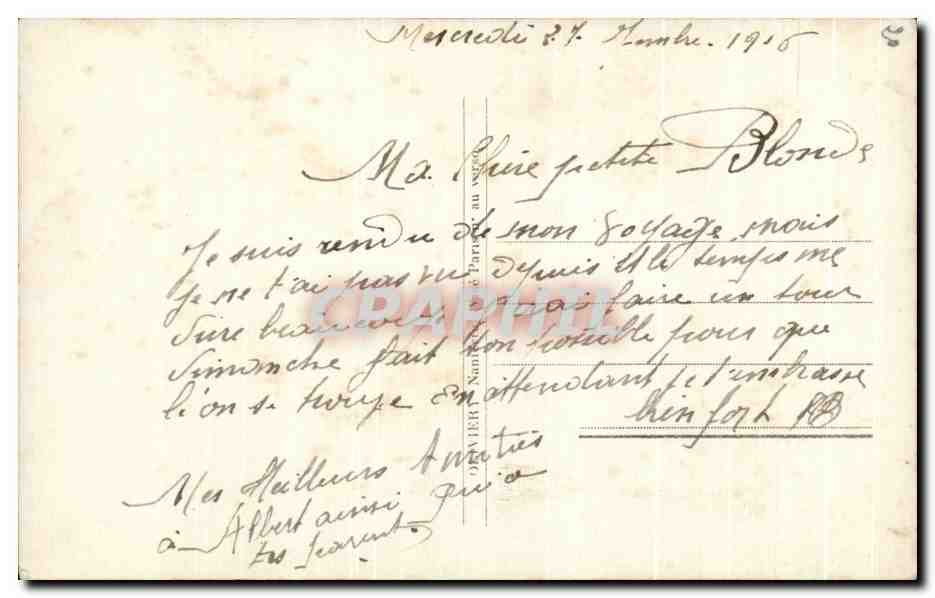 Mercredi 27. 1916
Ma Chère petite Blonde
Je suis rendu de mon Voyage, mais
je ne t'ai pas vu depuis et le temps me
dure beaucoup faire un tour
dimanche fait ton possible pour que
l'on se trouve En attendant je t'embrasse
bien fort
Mes Meilleurs Amitiés
à Albert ainsi qu'a
tes parent.
CRAPHIL
OLIVIER Paris au verso